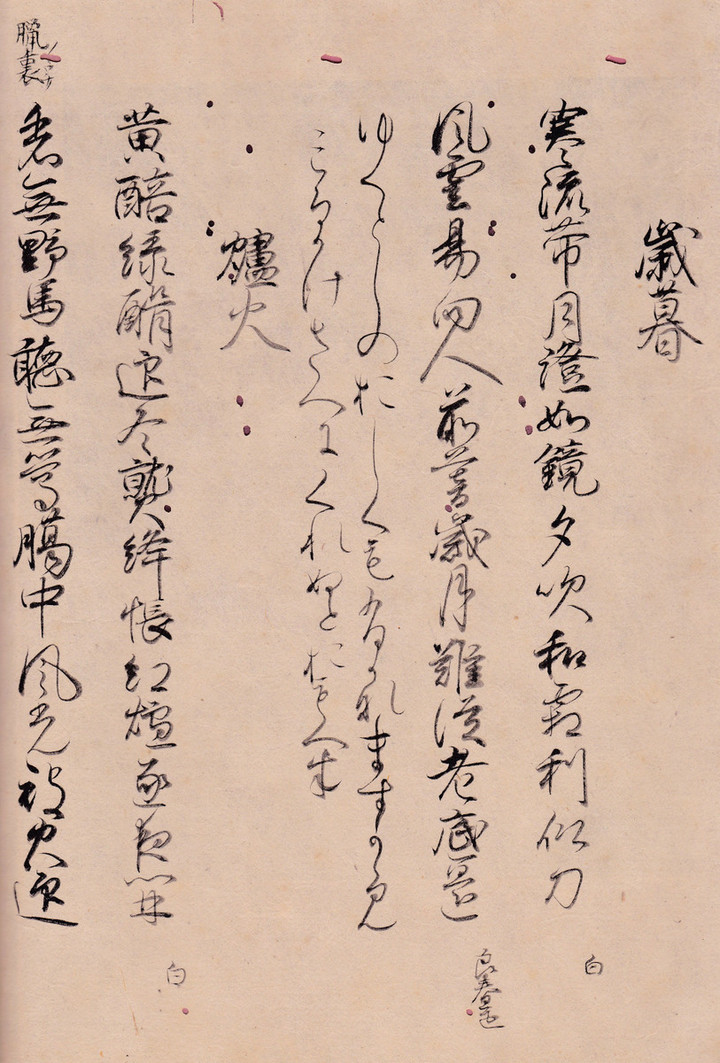 歳暮
寒流帯月澄如鏡夕吹和霜利似刀 白
風雲易向人前暮歳月難従老底還 良春道
ゆくとしのおしくもあるかなますかゝ見
みるかけさへにくれぬとおもへは
爐火
黄醅緑醑迎冬熟絳帳紅爐逐夜開 白
臘裏
看無野馬聴無鶯臈中風光被火迎